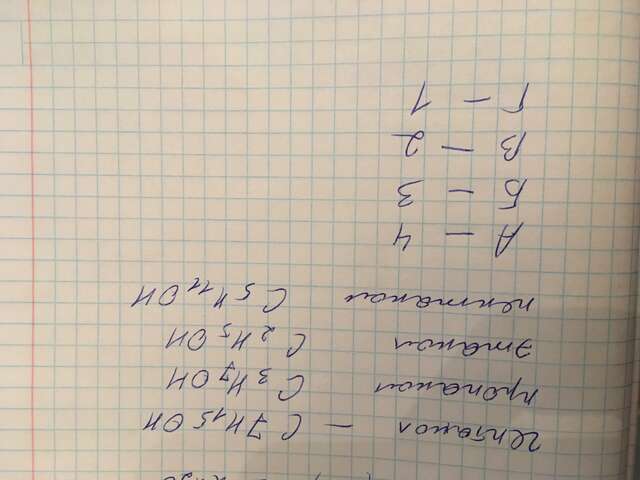 гептанол — C7H15OH
пропанол C3H7OH
этанол C2H5OH
пентанол C5H11OH
А — 4
Б — 3
В — 2
Г — 1